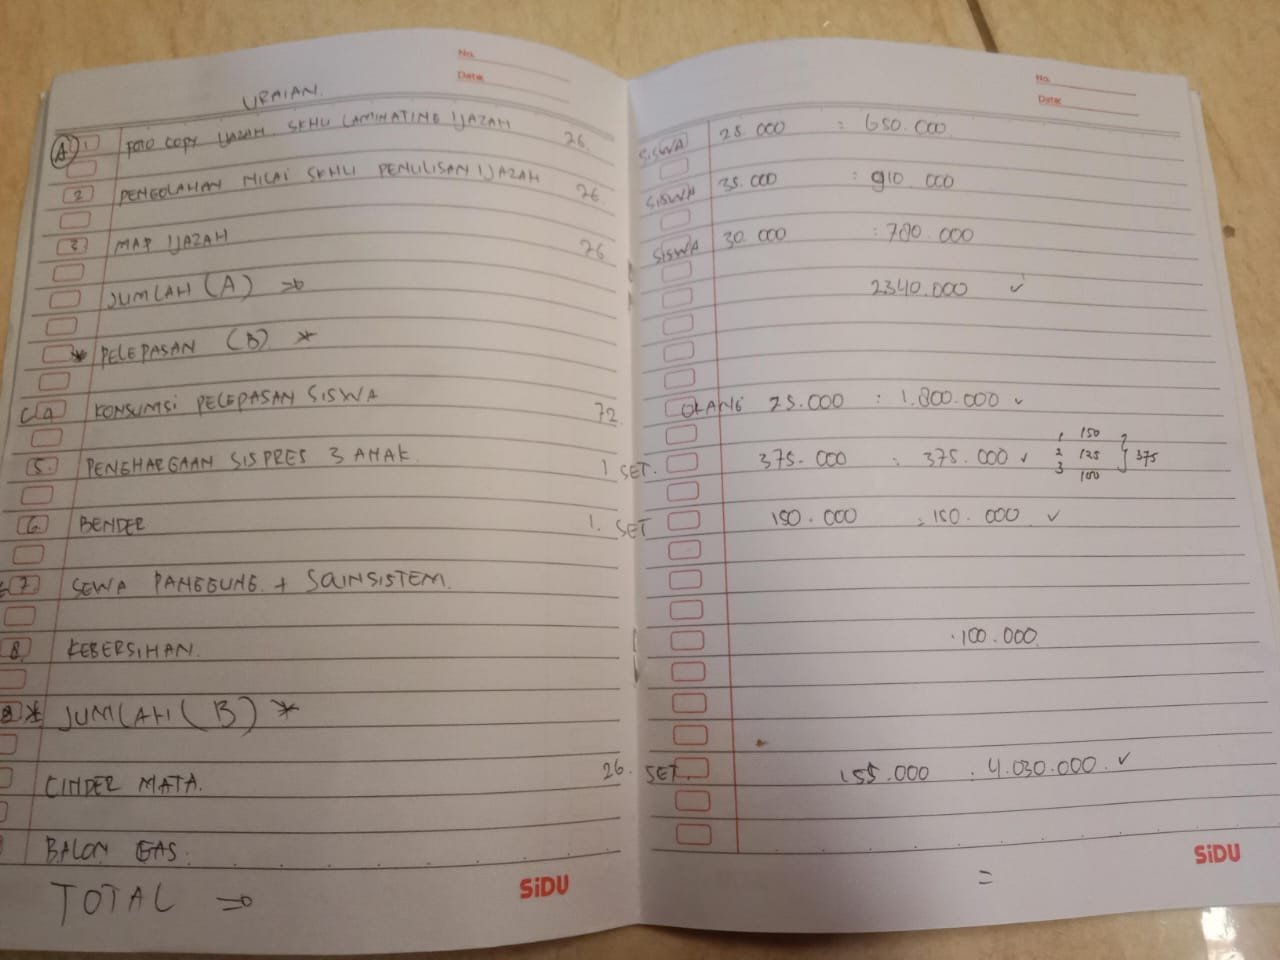 No.
Date:
No.
Date:
URAIAN.
A 1 FOTO COPY IJAZAH. SKHU LAMINATING IJAZAH 26. SISWA 25.000 : 650.000
2 PENGOLAHAN NILAI SKHU PENULISAN IJAZAH 26. SISWA 35.000 : 910.000
3 MAP IJAZAH 26 SISWA 30.000 : 780.000
JUMLAH (A) => 2340.000 ✓
* PELEPASAN (B) *
4 KONSUMSI PELEPASAN SISWA 72. ORANG 25.000 : 1.800.000 ✓
5. PENGHARGAAN SISPRES 3 ANAK. 1 SET. 375.000 : 375.000 ✓ 1 150 2 125 3 100 } 375
6. BENDER 1. SET 150.000 : 150.000 ✓
7. SEWA PANGGUNG + SAINSISTEM.
8. KEBERSIHAN. 100.000.
* JUMLAH (B) *
CINDER MATA. 26. SET. 155.000 : 4.030.000. ✓
BALON GAS.
TOTAL => =
SiDU
SiDU